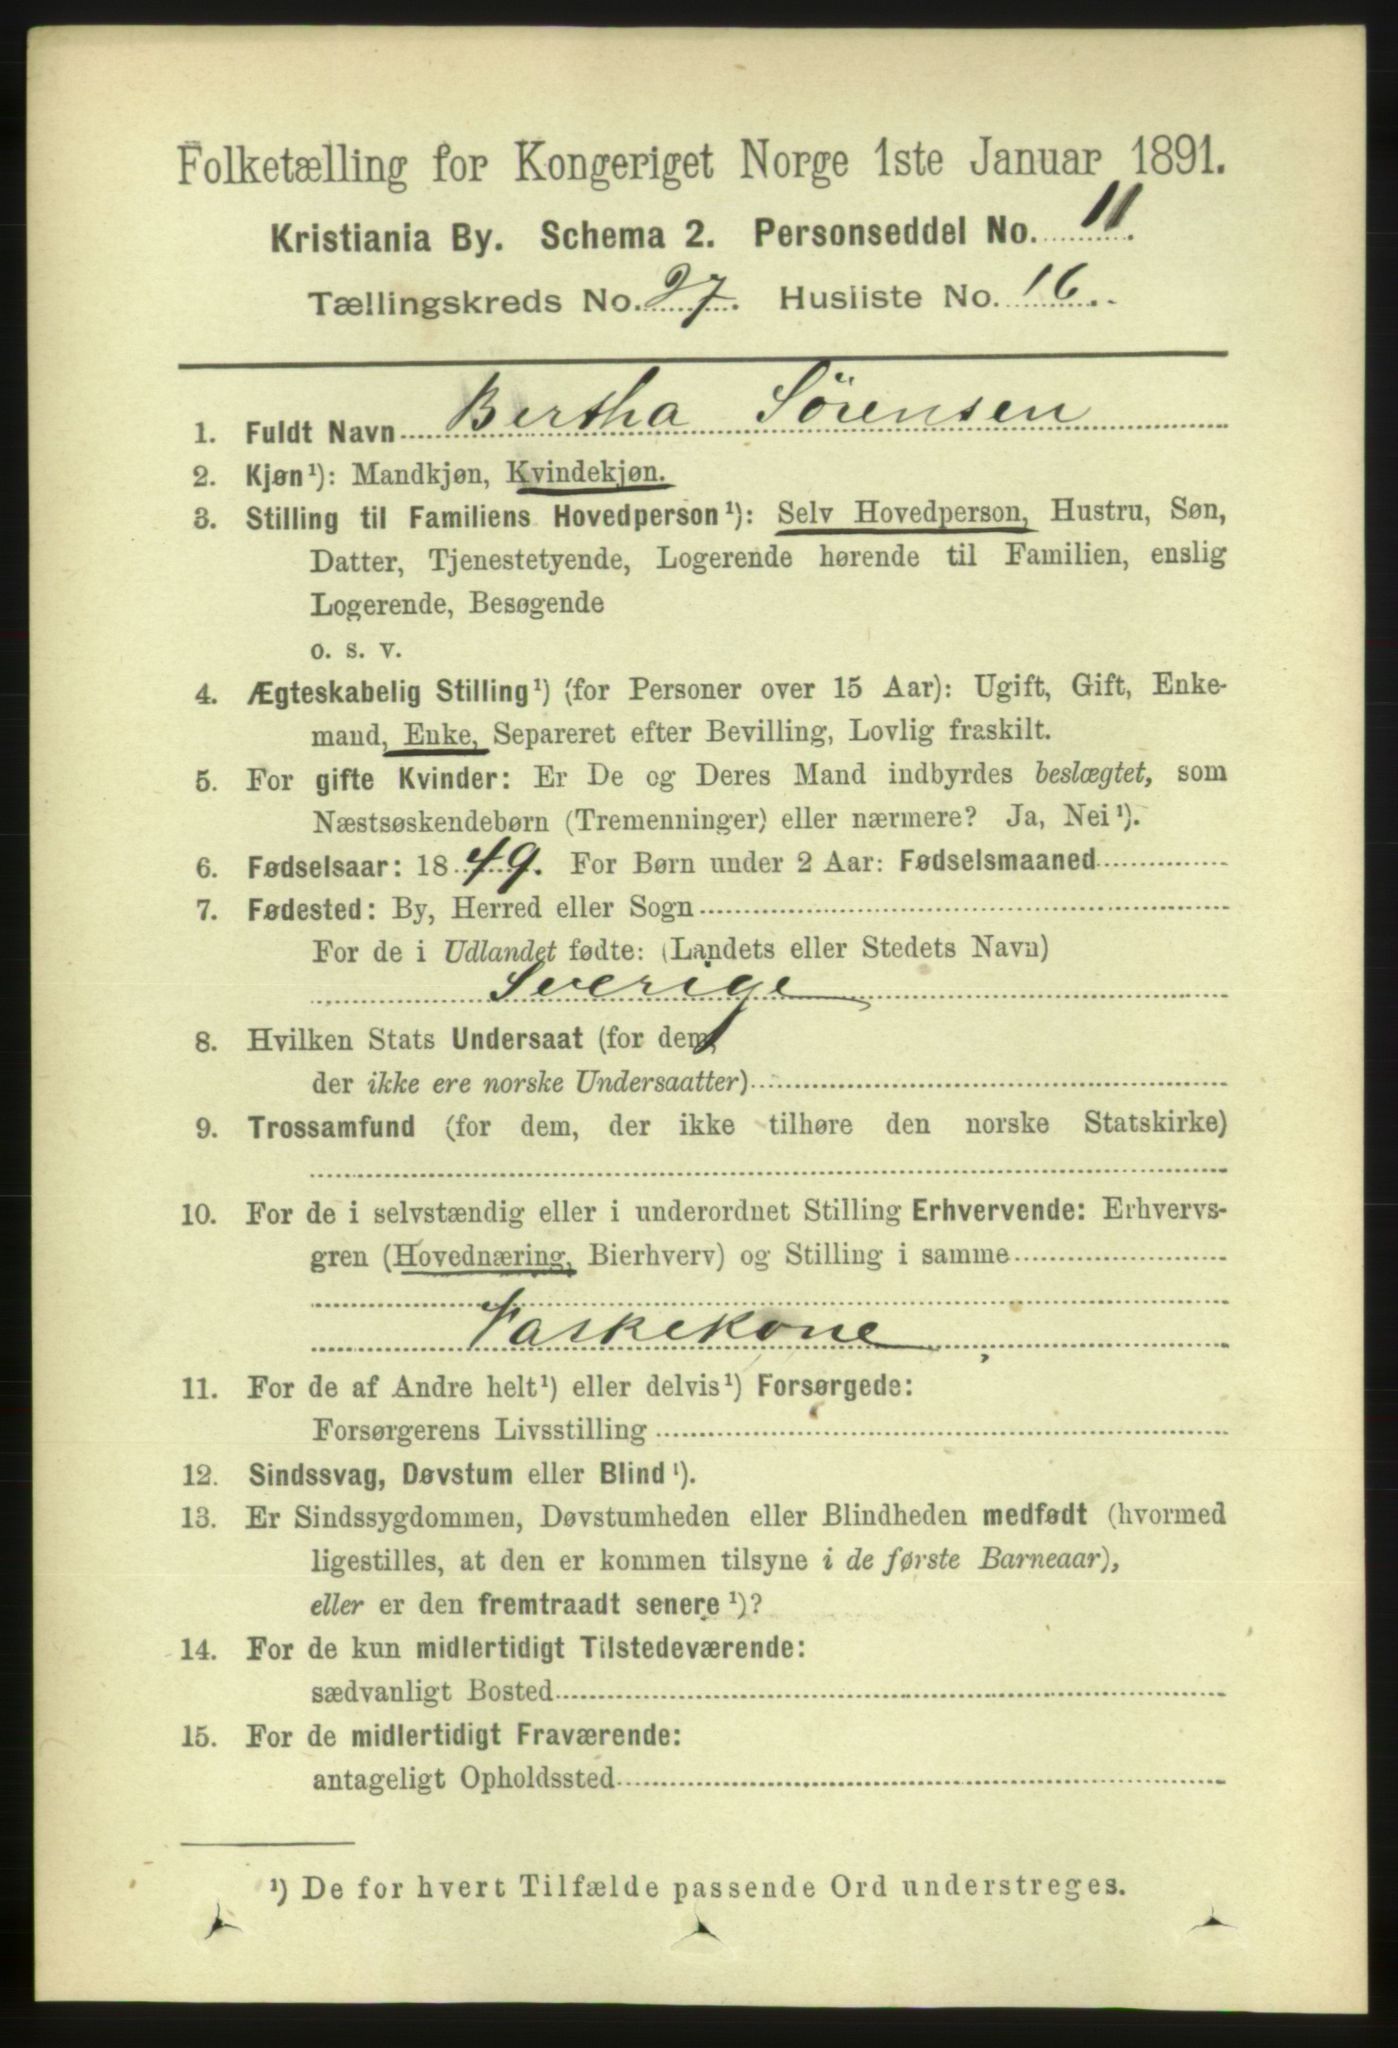 Folketælling for Kongeriget Norge 1ste Januar 1891.
Kristiania By. Schema 2. Personseddel No. 11.
Tællingskreds No. 27. Husliste No. 16.
1. Fuldt Navn Bertha Sörensen
2. Kjøn¹): Mandkjøn, Kvindekjøn.
3. Stilling til Familiens Hovedperson¹): Selv Hovedperson, Hustru, Søn,
Datter, Tjenestetyende, Logerende hørende til Familien, enslig
Logerende, Besøgende
o. s. v.
4. Ægteskabelig Stilling¹) (for Personer over 15 Aar): Ugift, Gift, Enke-
mand, Enke, Separeret efter Bevilling, Lovlig fraskilt.
5. For gifte Kvinder: Er De og Deres Mand indbyrdes beslægtet, som
Næstsøskendebørn (Tremenninger) eller nærmere? Ja, Nei¹).
6. Fødselsaar: 1849. For Børn under 2 Aar: Fødselsmaaned
7. Fødested: By, Herred eller Sogn
For de i Udlandet fødte: (Landets eller Stedets Navn)
Sverige
8. Hvilken Stats Undersaat (for dem,
der ikke ere norske Undersaatter)
9. Trossamfund (for dem, der ikke tilhøre den norske Statskirke)
10. For de i selvstændig eller i underordnet Stilling Erhvervende: Erhvervs-
gren (Hovednæring, Bierhverv) og Stilling i samme
Vaskekone
11. For de af Andre helt¹) eller delvis¹) Forsørgede:
Forsørgerens Livsstilling
12. Sindssvag, Døvstum eller Blind¹).
13. Er Sindssygdommen, Døvstumheden eller Blindheden medfødt (hvormed
ligestilles, at den er kommen tilsyne i de første Barneaar),
eller er den fremtraadt senere¹)?
14. For de kun midlertidigt Tilstedeværende:
sædvanligt Bosted
15. For de midlertidigt Fraværende:
antageligt Opholdssted
¹) De for hvert Tilfælde passende Ord understreges.